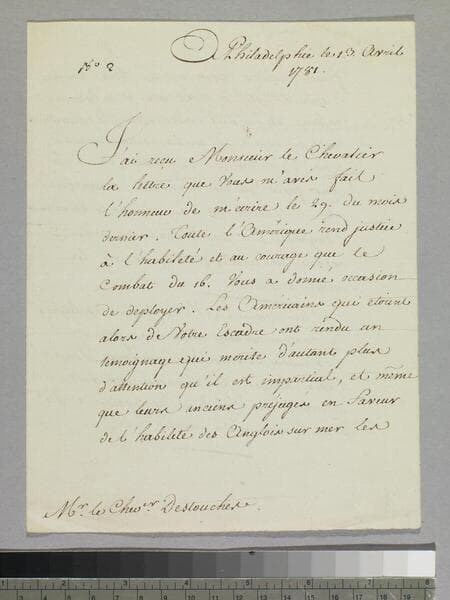 A Philadelphie le 13 Avril
1781.
N.º 2
J'ai reçu Monsieur le Chevalier
la lettre que Vous m'avés fait
l'honneur de m'écrire le 29. du mois
dernier. Toute l'Amérique rend justice
à l'habileté et au courage que le
Combat du 16. Vous a donné occasion
de deployer. Les Américains qui étoient
alors de Notre Escadre ont rendu un
temoignage qui mérite d'autant plus
d'attention qu'il est impartial, et même
que leurs anciens préjugés en faveur
de l'habileté des Anglois sur mer les
Mr. le Chever. Destouches.